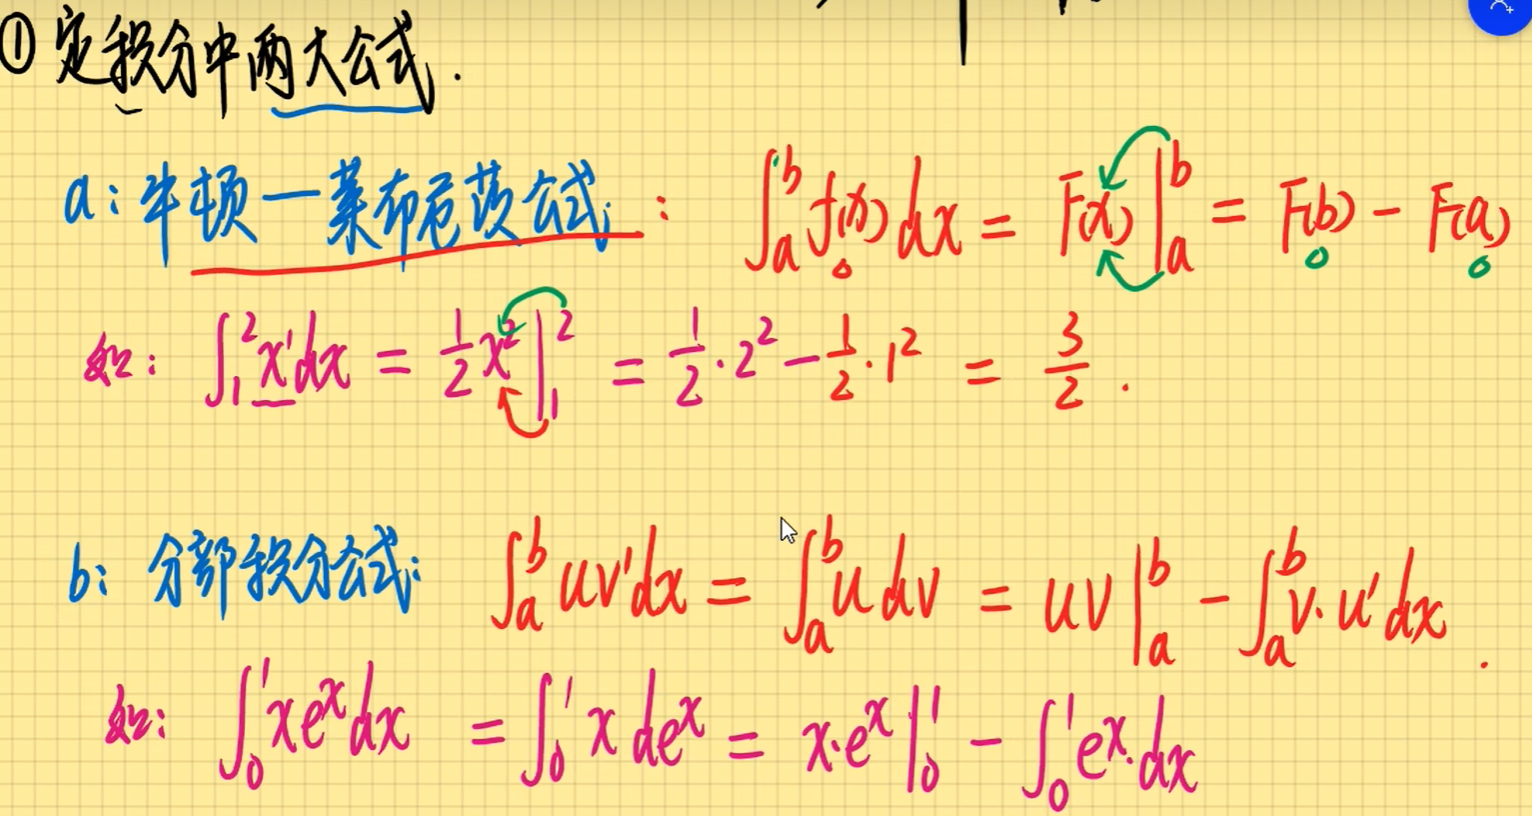 ① 定积分中两大公式.
a: 牛顿—莱布尼茨公式: ∫_a^b f(x)dx = F(x)|_a^b = F(b) - F(a)
如: ∫_1^2 x^1 dx = 1/2 x^2 |_1^2 = 1/2 · 2^2 - 1/2 · 1^2 = 3/2 .
b: 分部积分公式: ∫_a^b uv'dx = ∫_a^b u dv = uv|_a^b - ∫_a^b v·u'dx .
如: ∫_0^1 xe^x dx = ∫_0^1 x de^x = x·e^x|_0^1 - ∫_0^1 e^x·dx